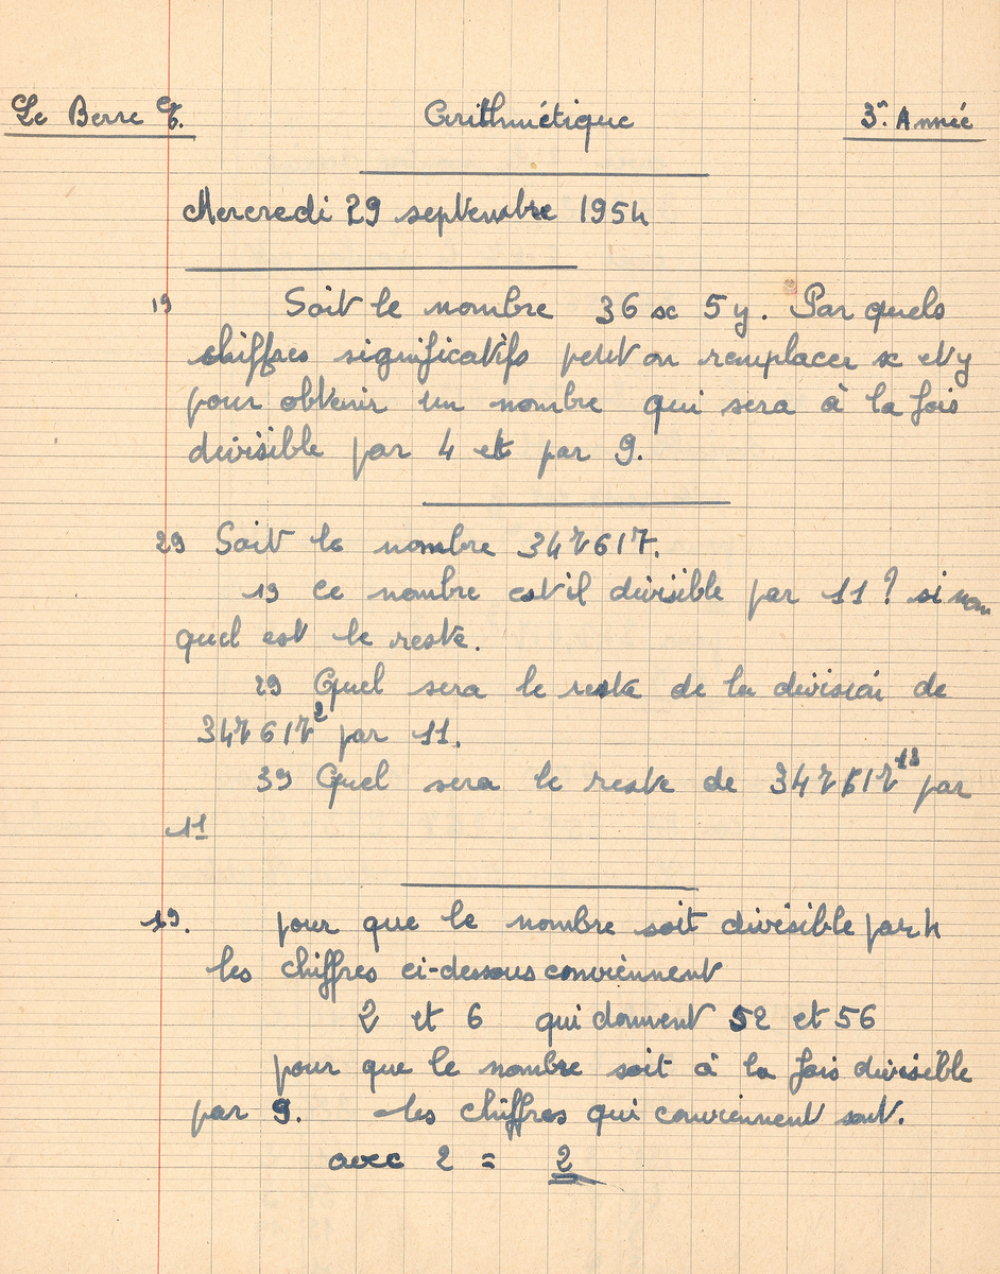 Le Berre
Arithmétique
3e Année
Mercredi 29 septembre 1954
1° Soit le nombre 36 x 5 y. Par quels
chiffres significatifs peut on remplacer x et y
pour obtenir un nombre qui sera à la fois
divisible par 4 et par 9.
2° Soit le nombre 347617.
1° Ce nombre est il divisible par 11 ? si non
quel est le reste.
2° Quel sera le reste de la division de
347617² par 11.
3° Quel sera le reste de 347617 par
11
1°. pour que le nombre soit divisible par 4
les chiffres ci-dessous conviennent
2 et 6 qui donnent 52 et 56
pour que le nombre soit à la fois divisible
par 9. les chiffres qui conviennent sont.
avec 2 = 2